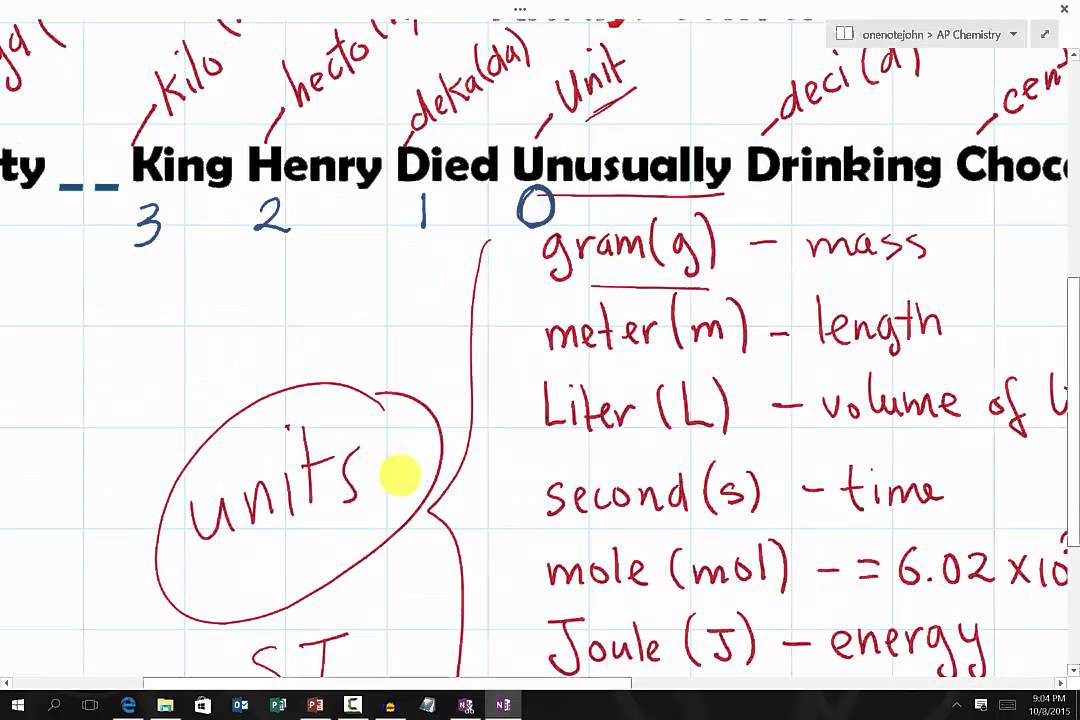 onenotejohn > AP Chemistry
kilo hecto deka(da) Unit deci(d) cen
ty _ _ King Henry Died Unusually Drinking Choc
3 2 1 0
gram(g) - mass
meter(m) - length
Liter (L) - volume of
second(s) - time
mole (mol) - = 6.02 x 10
Joule (J) - energy
units
SI
9:04 PM
10/8/2015